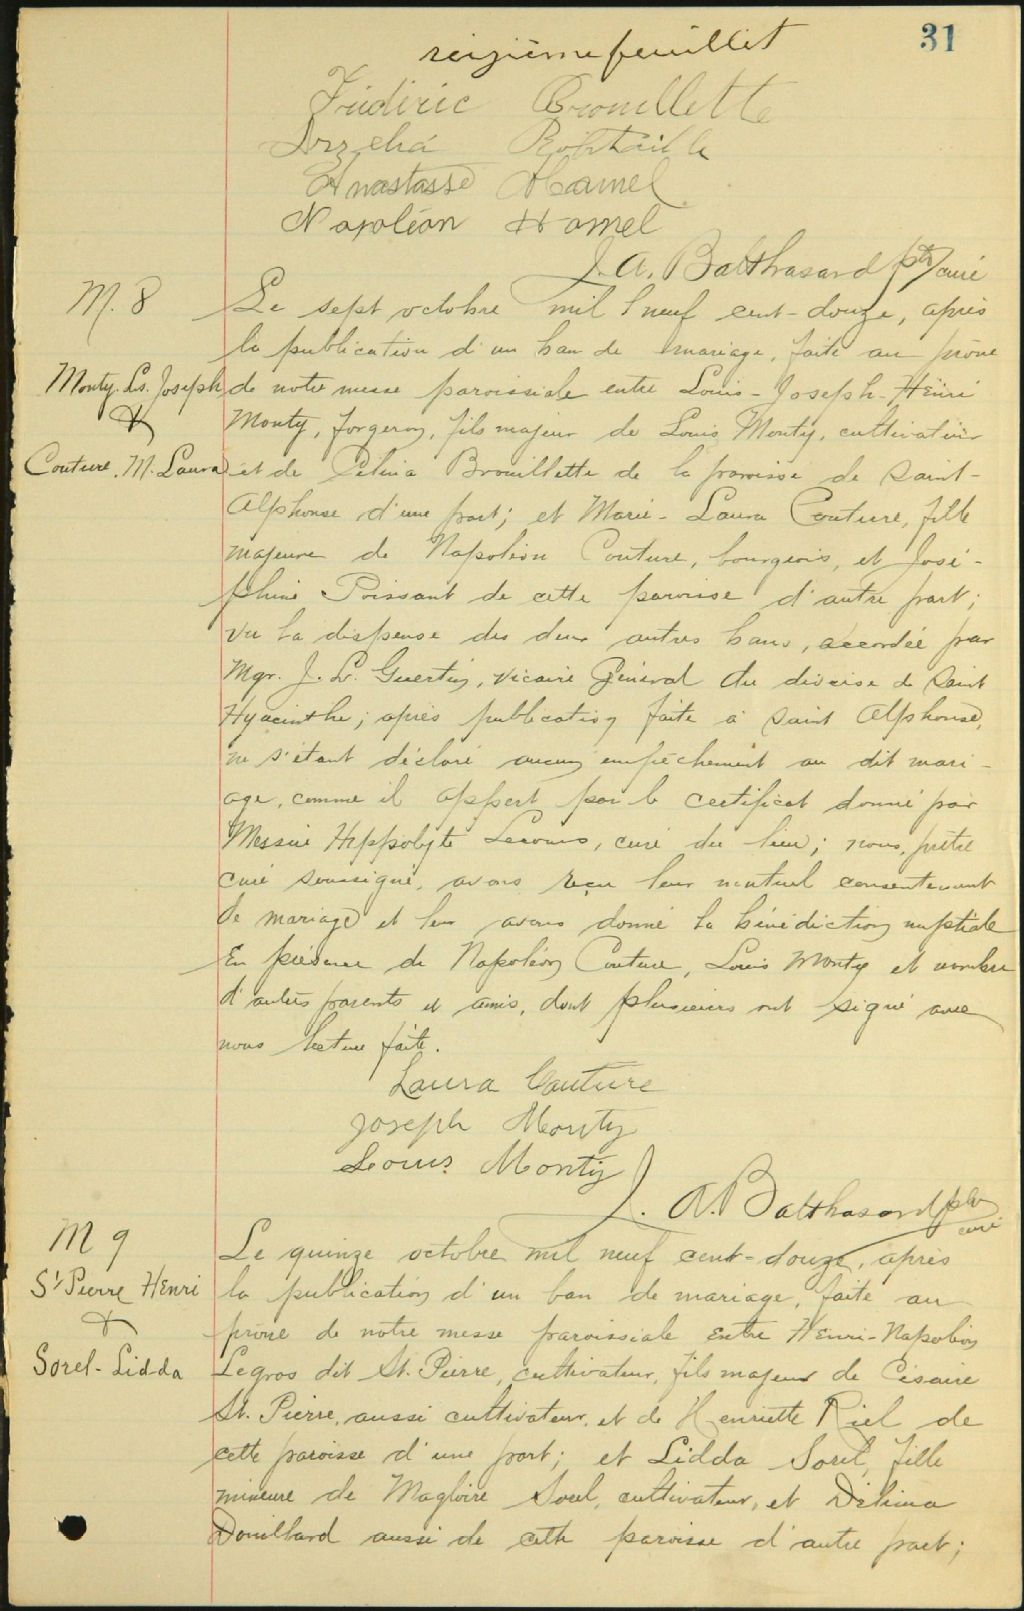 31
seizième feuillet
Frédéric Brouillette
Anastasse Hamel
Napoléon Hamel
J. A. Balthasard ptre curé
M. 8
Le sept octobre mil neuf cent-douze, après
la publication d'un ban de mariage, faite au prône
Monty. Ls. Joseph
de notre messe paroissiale entre Louis-Joseph-Henri
&
Monty, forgeron, fils majeur de Louis Monty, cultivateur
Couture. M. Laura
et de Célina Brouillette de la paroisse de Saint-
Alphonse d'une part; et Marie-Laura Couture, fille
majeure de Napoléon Couture, bourgeois, et José-
phine Poissant de cette paroisse d'autre part;
vu la dispense des deux autres bans, accordée par
Mgr. J. L. Guertin, vicaire Général du diocèse de Saint
Hyacinthe; après publication faite à Saint Alphonse,
ne s'étant déclaré aucun empêchement au dit mari-
age, comme il appert par le certificat donné par
Messire Hyppolyte Lecours, curé du lieu; nous, prêtre
curé soussigné, avons reçu leur mutuel consentement
de mariage et leur avons donné la bénédiction nuptiale
En présence de Napoléon Couture, Louis Monty et nombre
d'autres parents et amis, dont plusieurs ont signé avec
nous lecture faite.
Laura Couture
Joseph Monty
Louis Monty
J. A. Balthasard ptre
curé
M 9
Le quinze octobre mil neuf cent-douze, après
St Pierre Henri
la publication d'un ban de mariage, faite au
&
prône de notre messe paroissiale entre Henri-Napoléon
Sorel-Lidda
Legros dit St. Pierre, cultivateur, fils majeur de Césaire
St. Pierre, aussi cultivateur, et de Henriette Riel de
cette paroisse d'une part; et Lidda Sorel, fille
mineure de Magloire Sorel, cultivateur, et Délima
Douillard aussi de cette paroisse d'autre part;